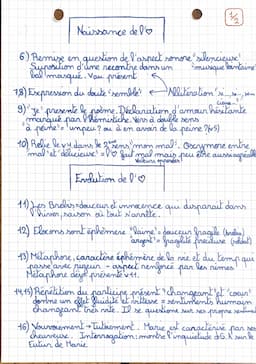 1/2
Naissance de l'♡
6) Remise en question de l'aspect sonore "silencieux"
Supposition d'une rencontre dans un "musique lointaine"
bal masqué. Vau présent
7,8) Expression du doute "semble" Allitération
9) "Je" présente le poème. Déclaration d'amour hésitante
marqué par l'hémistiche. Vers à double sens
"à peine" = un peu? ou à en avoir de la peine?
10) Relie le v4 dans le 2e sens "mon mal". Oxymore entre
mal et délicieuse = l'♡ fait mal mais peu être aussi agréable
Evolution de l'♡
11) Les Brebis = douceur et innocence qui disparait dans
l'hiver, saison où tout s'arrête.
12) Flocons sont éphémère "laine" = douceur fragile
argent = fragilité précieuse
13) Métaphore, caractère éphémère de la vie et du temp qui
passe avec rigueur - aspect renforcé par les rimes
Métaphore déjà présente v11.
14,15) Répétition du participe présent "changeant" et "coeur"
donne un effet fluidité et vitesse = sentiments humain
changeant très vite. Il se questionne sur ses propres
16) Vouvoiement → Tutoiement. Marie est caractérisé par ses
cheveux. Interrogation: montre l'inquiétude de G.A sur le
futur de Marie